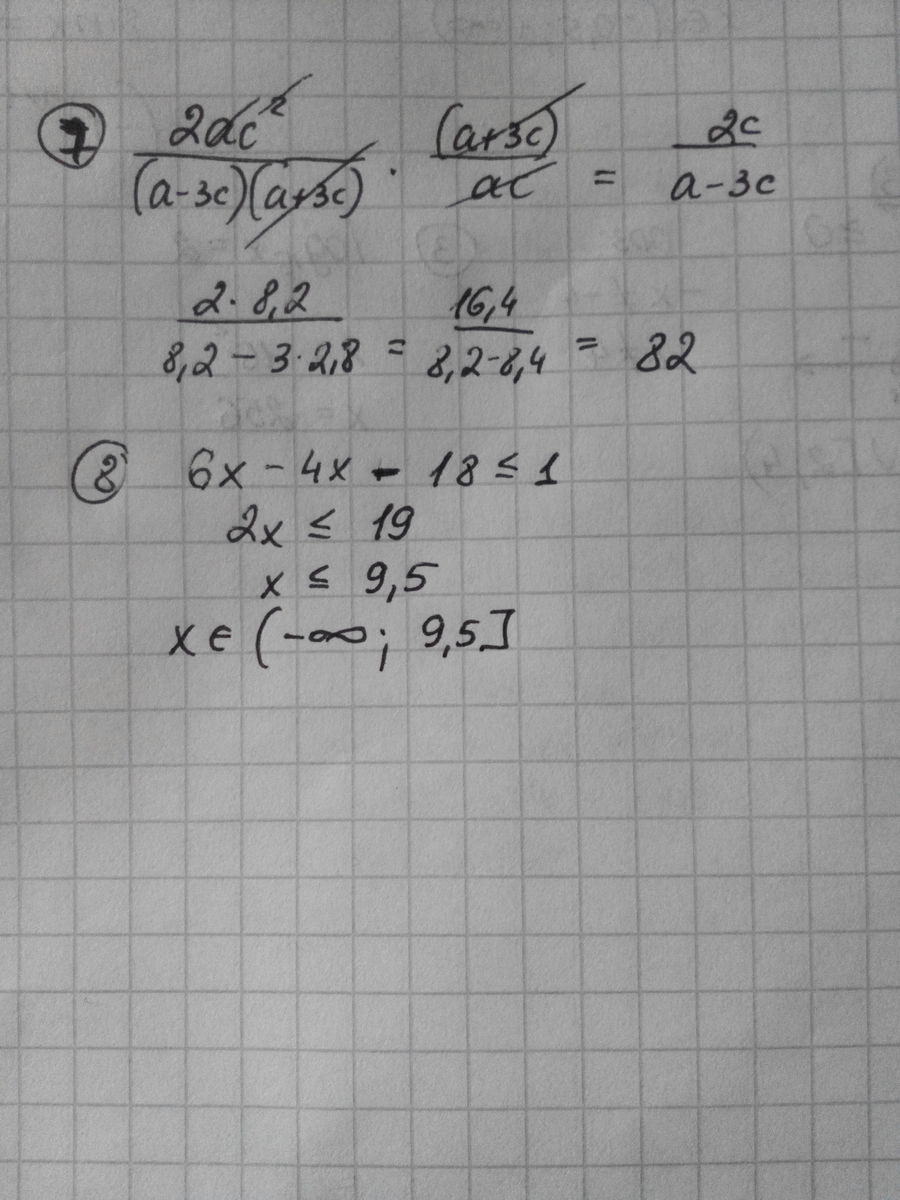 7 2ac² / (a-3c)(a+3c) · (a+3c) / ac = 2c / a-3c
2·8,2 / 8,2 - 3·2,8 = 16,4 / 8,2-8,4 = 82
8 6x - 4x - 18 ≤ 1
2x ≤ 19
x ≤ 9,5
x ∈ (-∞; 9,5]